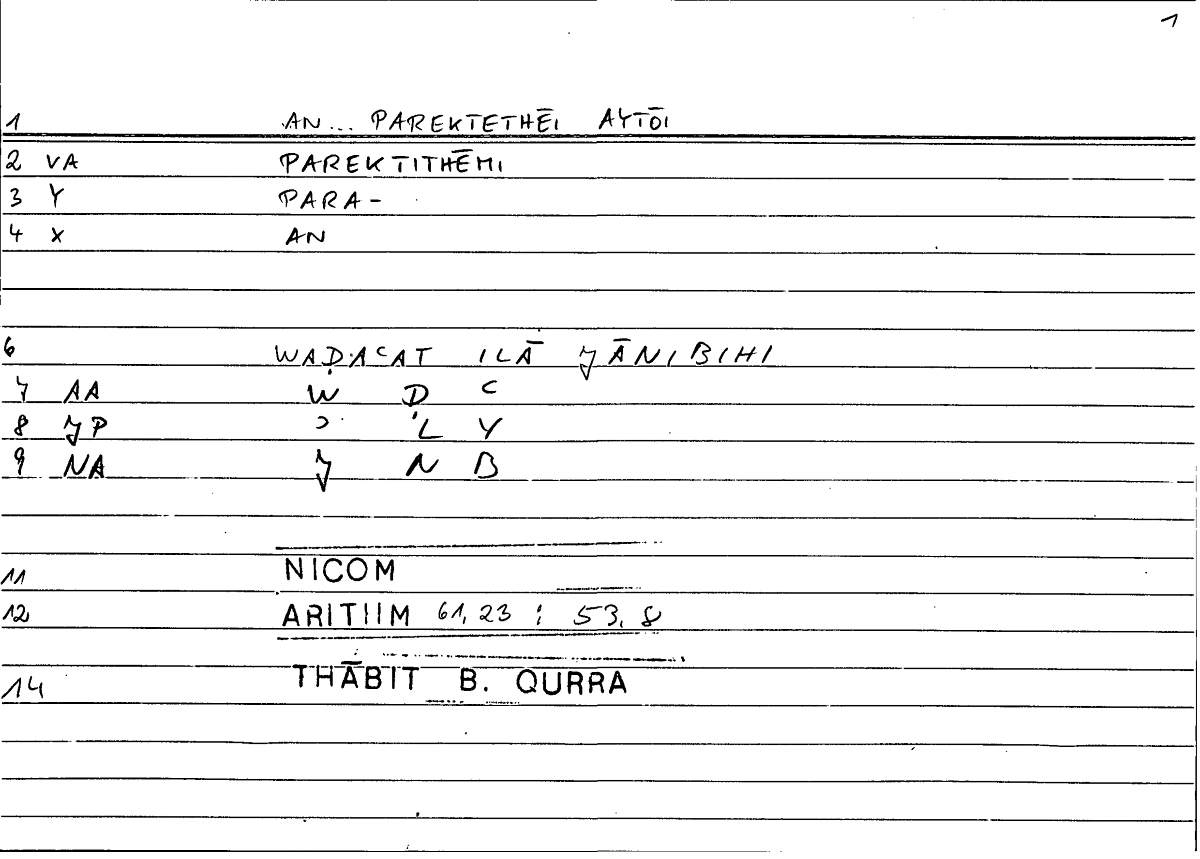 1
1 AN... PAREKTETHĒI AYTŌI
2 VA PAREKTITHĒMI
3 Y PARA-
4 X AN
6 WAḌAʿAT ILĀ ǦĀNIBIHI
7 AA W Ḍ ʿ
8 ǦP ʾ L Y
9 NA Ǧ N B
11 NICOM
12 ARITIIM 61,23 : 53,8
14 THĀBIT B. QURRA